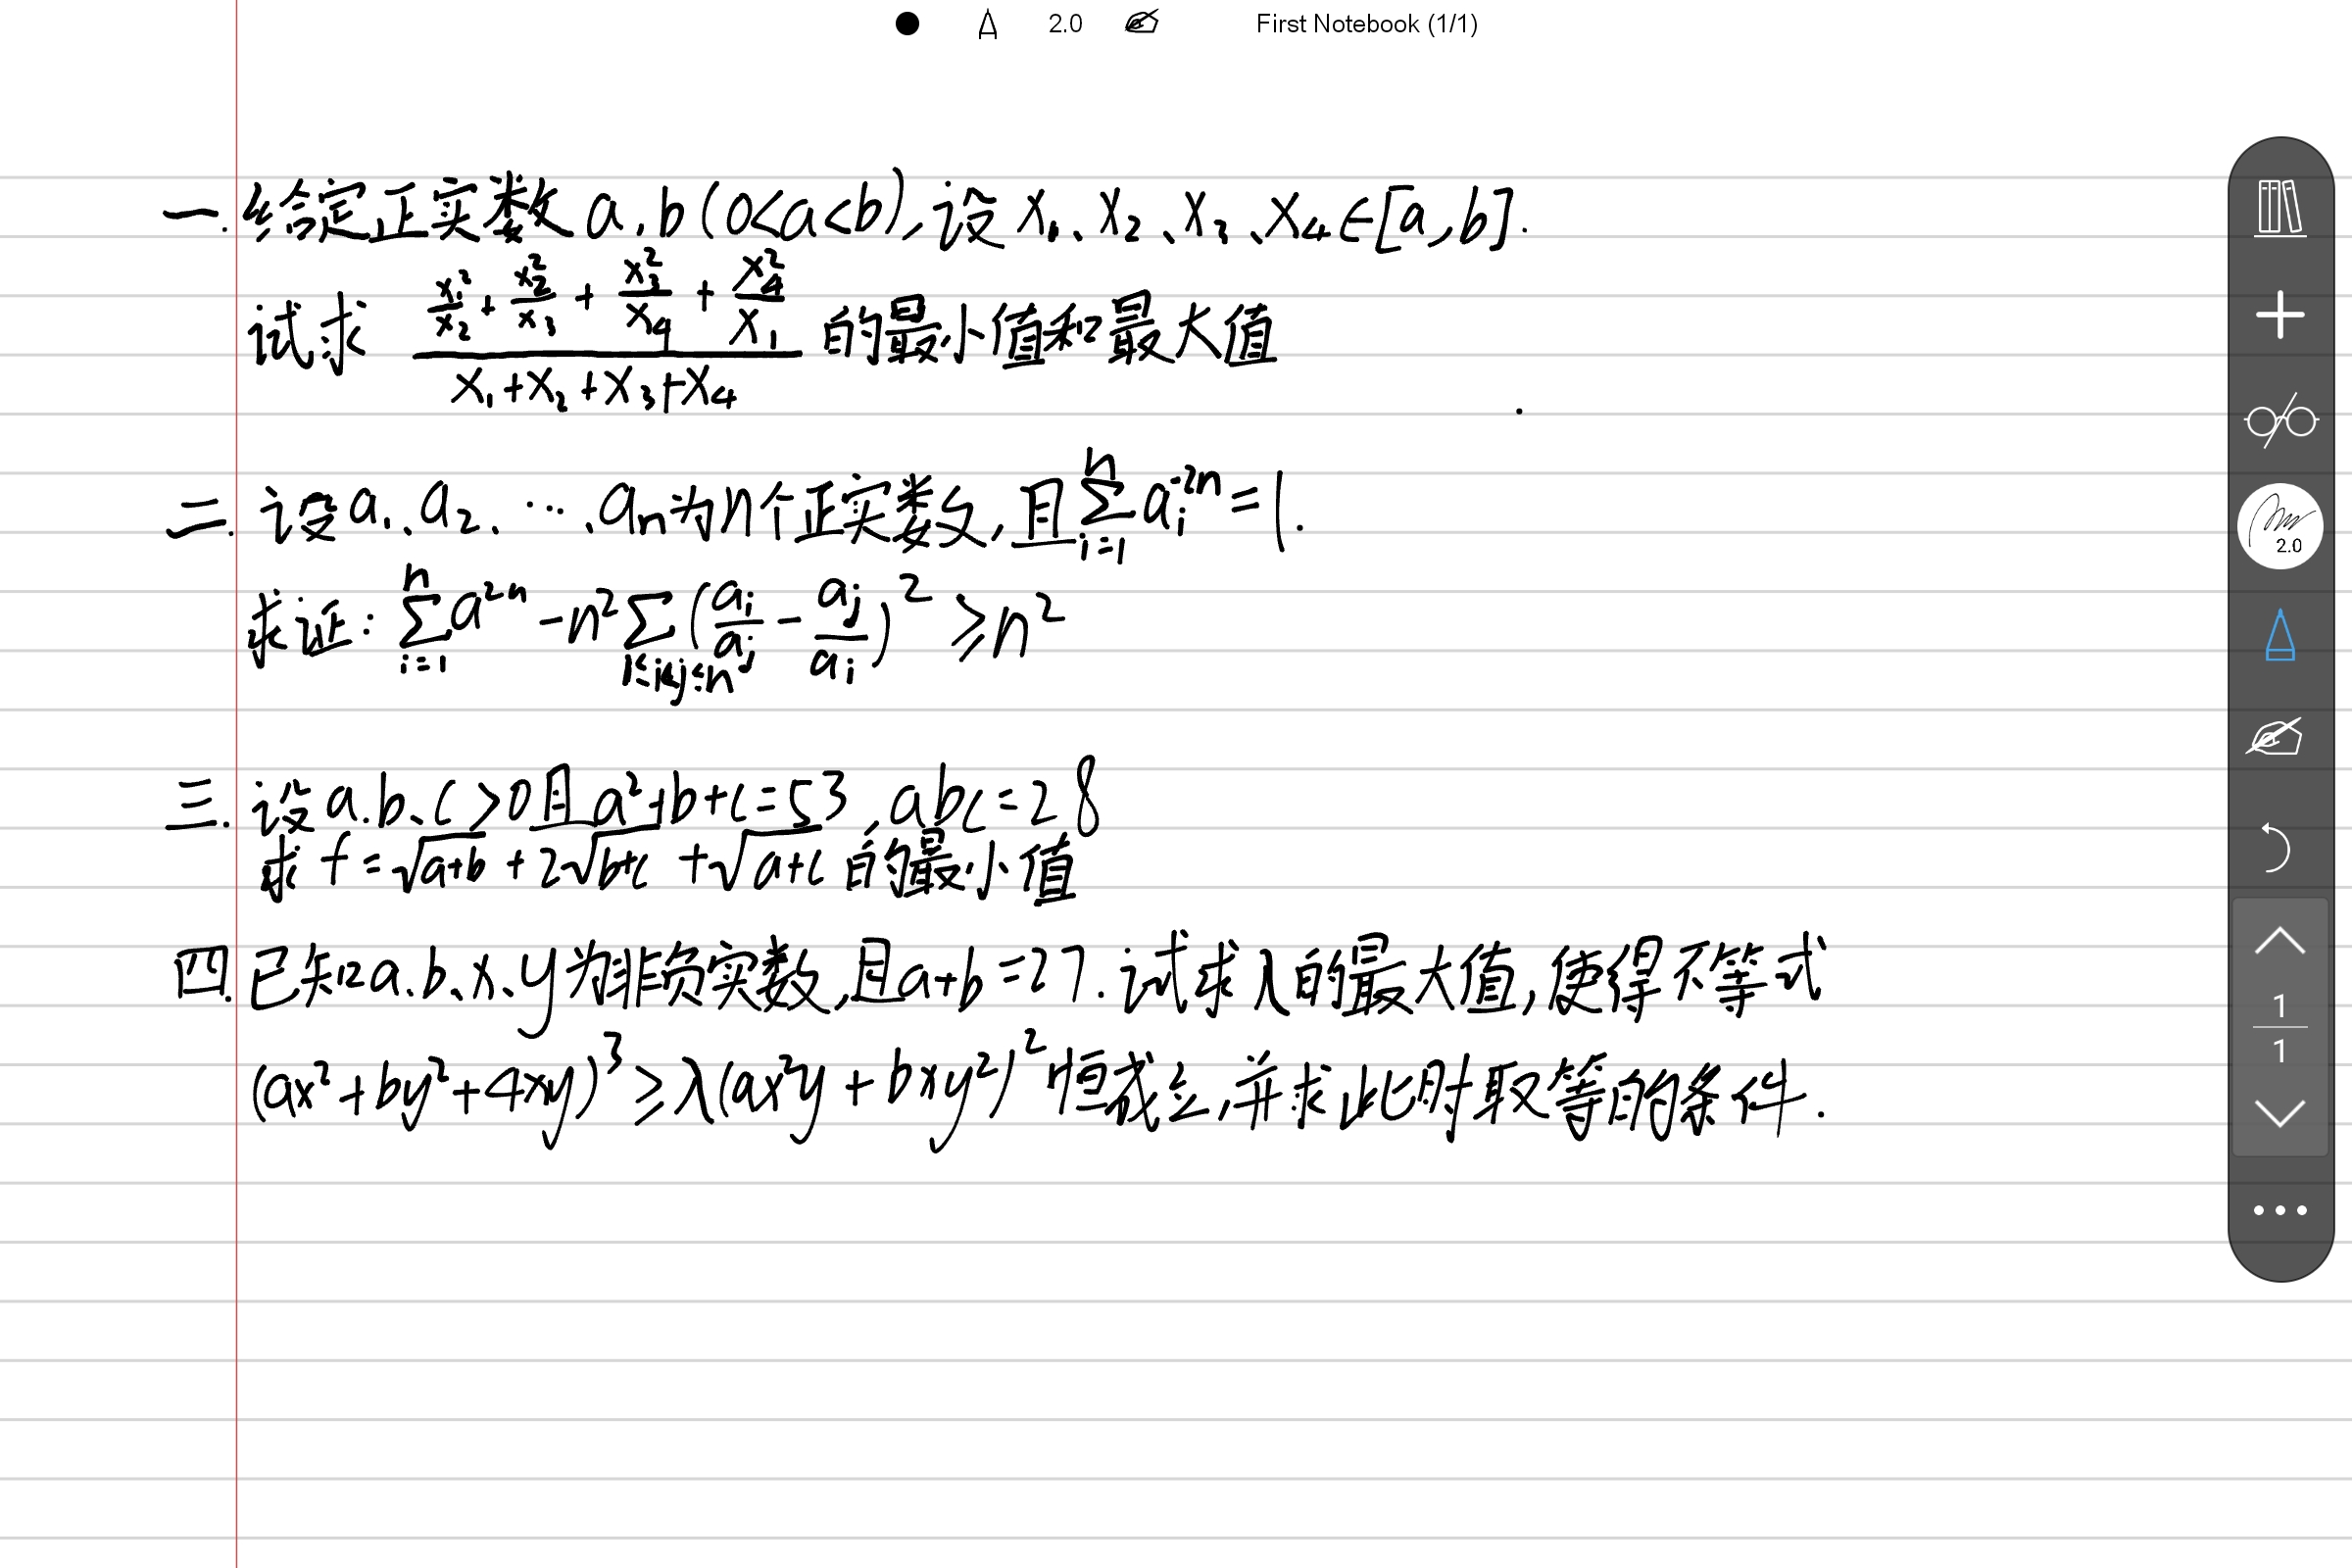 2.0 First Notebook (1/1)
一. 给定正实数 a, b (0<a<b), 设 x₁、x₂、x₃、x₄∈[a,b].
试求 (x₁²/x₂ + x₂²/x₃ + x₃²/x₄ + x₄²/x₁)/(x₁+x₂+x₃+x₄) 的最小值和最大值
二. 设 a₁、a₂、…、aₙ为n个正实数, 且 ∑_{i=1}^{n} a_i^{-2n} = 1.
求证: ∑_{i=1}^{n} a^{2n} - n² ∑_{1≤i<j≤n} (a_i/a_j - a_j/a_i)² ≥ n²
三. 设 a、b、c >0 且 a²+b+c=53, abc=28
求 f = √(a+b) + 2√(b+c) + √(a+c) 的最小值
四. 已知 a、b、x、y 为非负实数, 且 a+b=27. 试求λ的最大值, 使得不等式
(ax²+by²+4xy)³ ≥ λ(ax²y + bxy²)² 恒成立, 并求此时取等的条件.
2.0
1
1